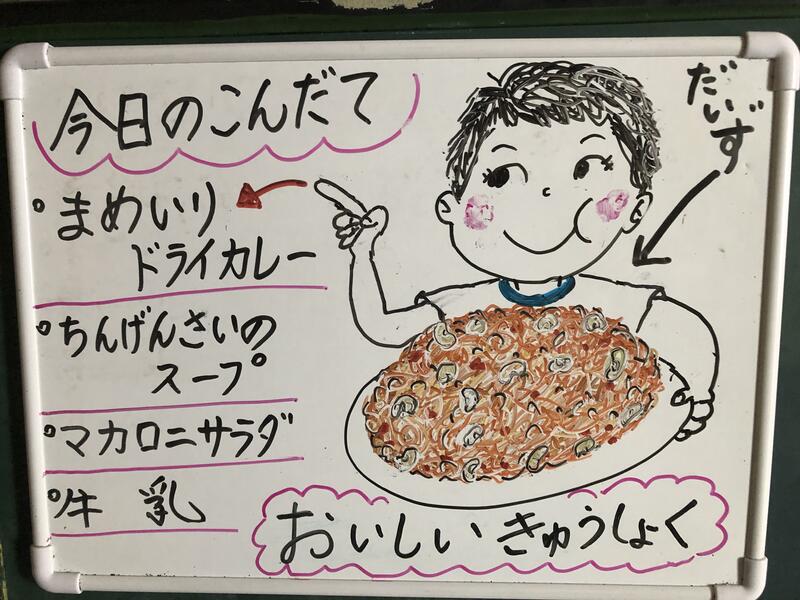 今日のこんだて
まめいり
ドライカレー
ちんげんさいの
スープ
マカロニサラダ
牛 乳
だいず
おいしいきゅうしょく